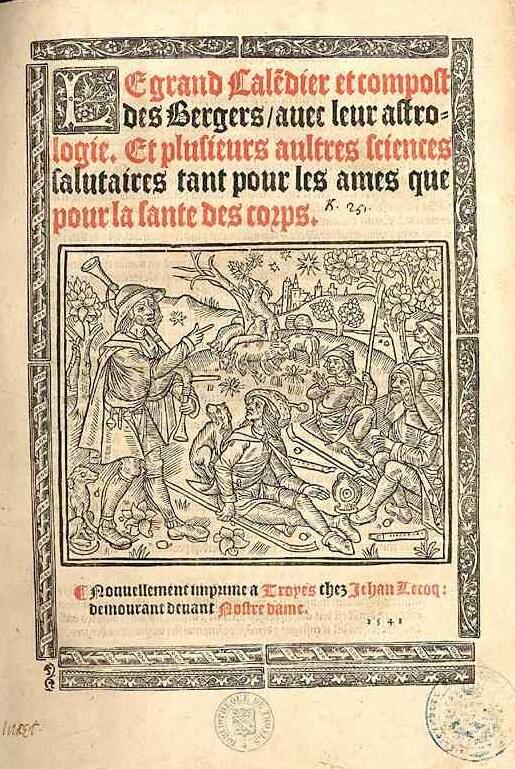 LE grand Calẽdier et compost
des Bergers/auec leur astro-
logie. Et plusieurs aultres sciences
salutaires tant pour les ames que
pour la sante des corps.
K. 25.
¶ Nouuellement imprime a Troyes chez Jehan Lecoq:
demourant deuant Nostre dame.
1541